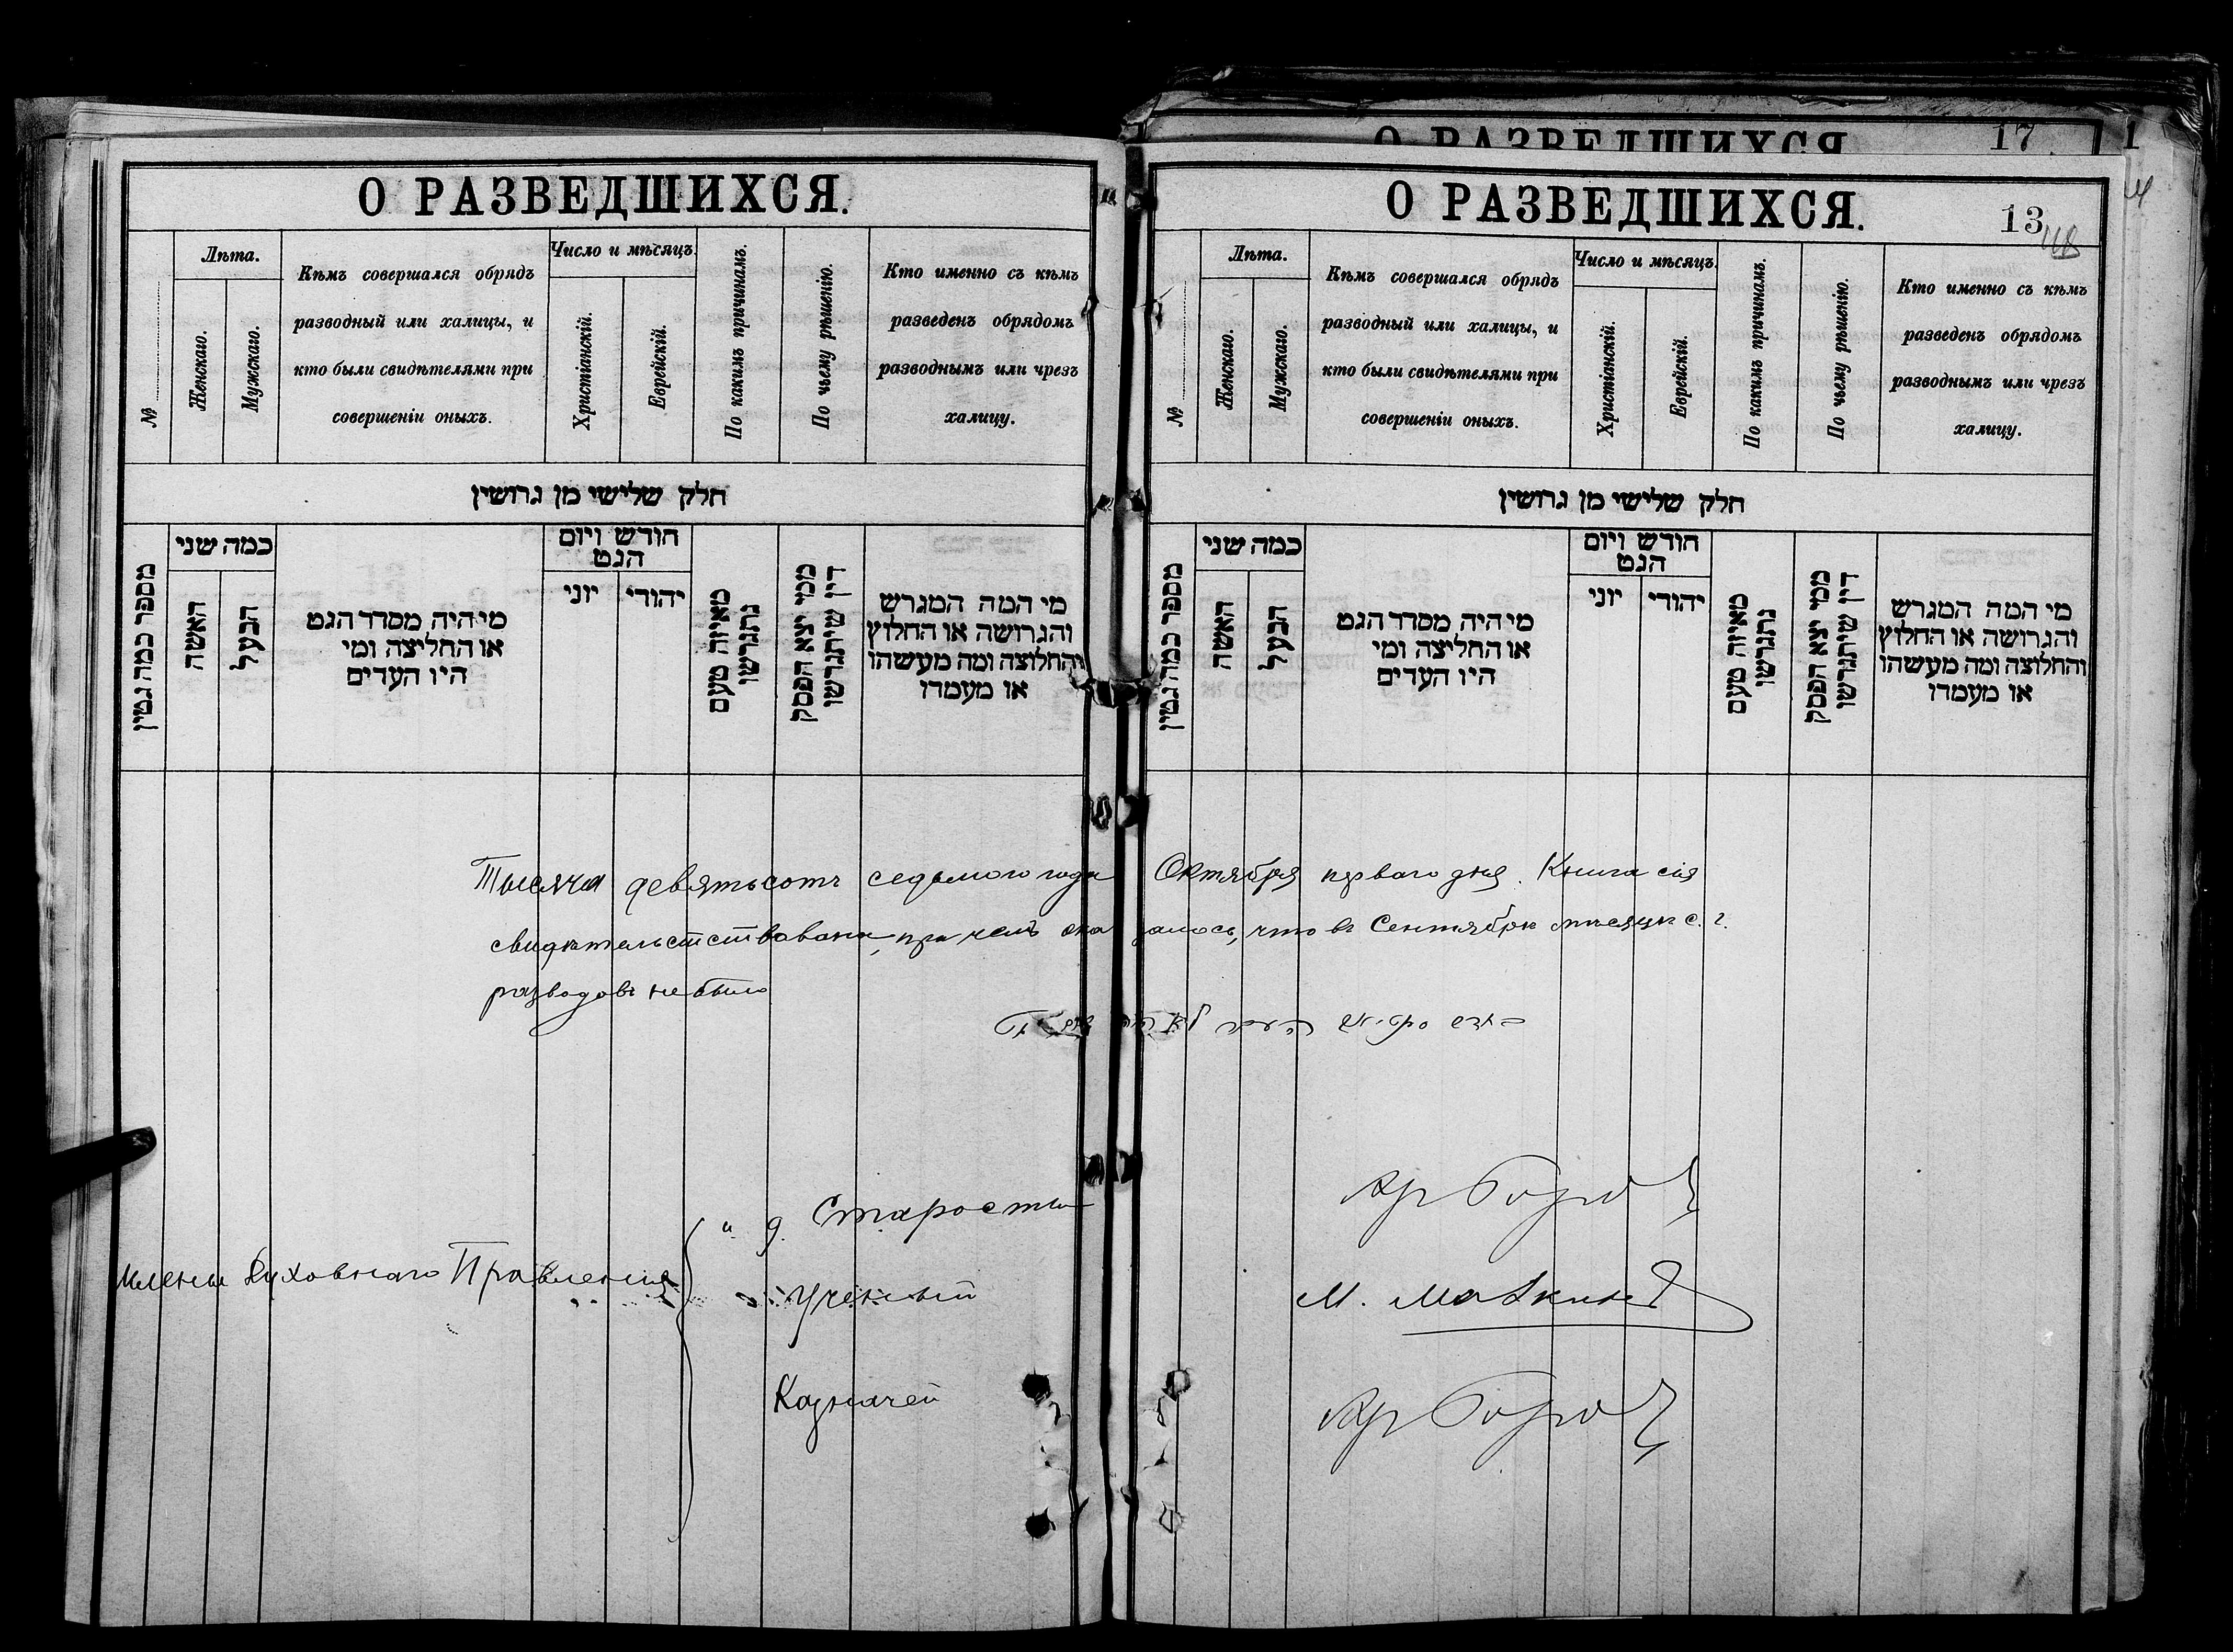 О РАЗВЕДШИХСЯ.
№
Лѣта.
Женскаго.
Мужскаго.
Кѣмъ совершался обрядъ
разводный или халицы, и
кто были свидѣтелями при
совершеніи оныхъ.
Число и мѣсяцъ.
Христіанскій.
Еврейскій.
По какимъ причинамъ.
По чьему рѣшенію.
Кто именно съ кѣмъ
разведенъ обрядомъ
разводнымъ или чрезъ
халицу.
חלק שלישי מן גרושין
מספר כמה גטין
כמה שני
האשה
הבעל
מי היה מסדר הגט
או החליצה ומי
היו העדים
חודש ויום
הגט
יוני
יהודי
מאיזה טעם
נתגרשו
ממי יצא הפסק
דין שיתגרשו
מי המה המגרש
והגרושה או החלוץ
והחלוצה ומה מעשהו
או מעמדו
О РАЗВЕДШИХСЯ
17
1
О РАЗВЕДШИХСЯ.
13
№
Лѣта.
Женскаго.
Мужскаго.
Кѣмъ совершался обрядъ
разводный или халицы, и
кто были свидѣтелями при
совершеніи оныхъ.
Число и мѣсяцъ.
Христіанскій.
Еврейскій.
По какимъ причинамъ.
По чьему рѣшенію.
Кто именно съ кѣмъ
разведенъ обрядомъ
разводнымъ или чрезъ
халицу.
חלק שלישי מן גרושין
מספר כמה גטין
כמה שני
האשה
הבעל
מי היה מסדר הגט
או החליצה ומי
היו העדים
חודש ויום
הגט
יוני
יהודי
מאיזה טעם
נתגרשו
ממי יצא הפסק
דין שיתגרשו
מי המה המגרש
והגרושה או החלוץ
והחלוצה ומה מעשהו
או מעמדו
Тысяча девятьсотъ седьмого года Октября перваго дня. Книга сія
свидѣтельстствована, при чемъ оказалось, что въ Сентябрѣ мѣсяцѣ с. г.
разводовъ не было
Члены Духовнаго Правленія
и д. Старосты
Ученый М.
Казначей